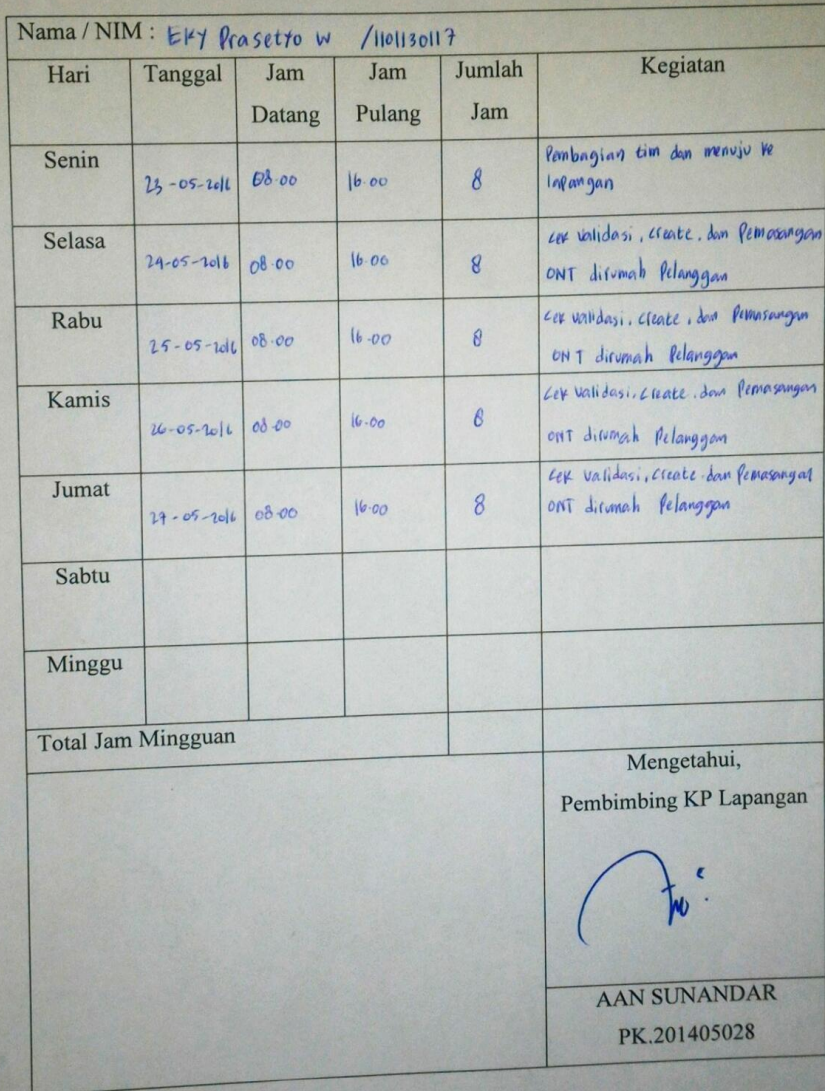 Nama / NIM : Eky Prasetyo W /1101130117
Hari Tanggal Jam Datang Jam Pulang Jumlah Jam Kegiatan
Senin 23-05-2016 08.00 16.00 8 Pembagian tim dan menuju ke
lapangan
Selasa 24-05-2016 08.00 16.00 8 cek validasi, create, dan Pemasangan
ONT dirumah Pelanggan
Rabu 25-05-2016 08.00 16.00 8 cek validasi, create, dan Pemasangan
ONT dirumah Pelanggan
Kamis 26-05-2016 08.00 16.00 8 Cek Validasi, create, dan Pemasangan
ONT dirumah Pelanggan
Jumat 27-05-2016 08.00 16.00 8 cek validasi, create dan Pemasangan
ONT dirumah Pelanggan
Sabtu
Minggu
Total Jam Mingguan
Mengetahui,
Pembimbing KP Lapangan
AAN SUNANDAR
PK.201405028